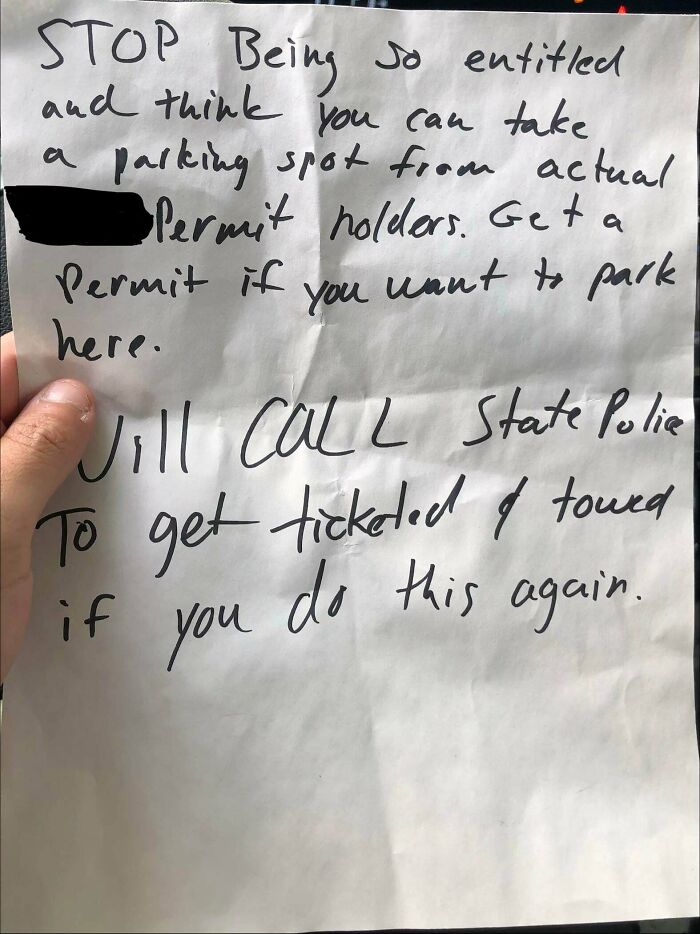 STOP Being so entitled
and think you can take
a parking spot from actual
Permit holders. Get a
Permit if you want to park
here.
Will CALL State Police
To get ticketed & towed
if you do this again.